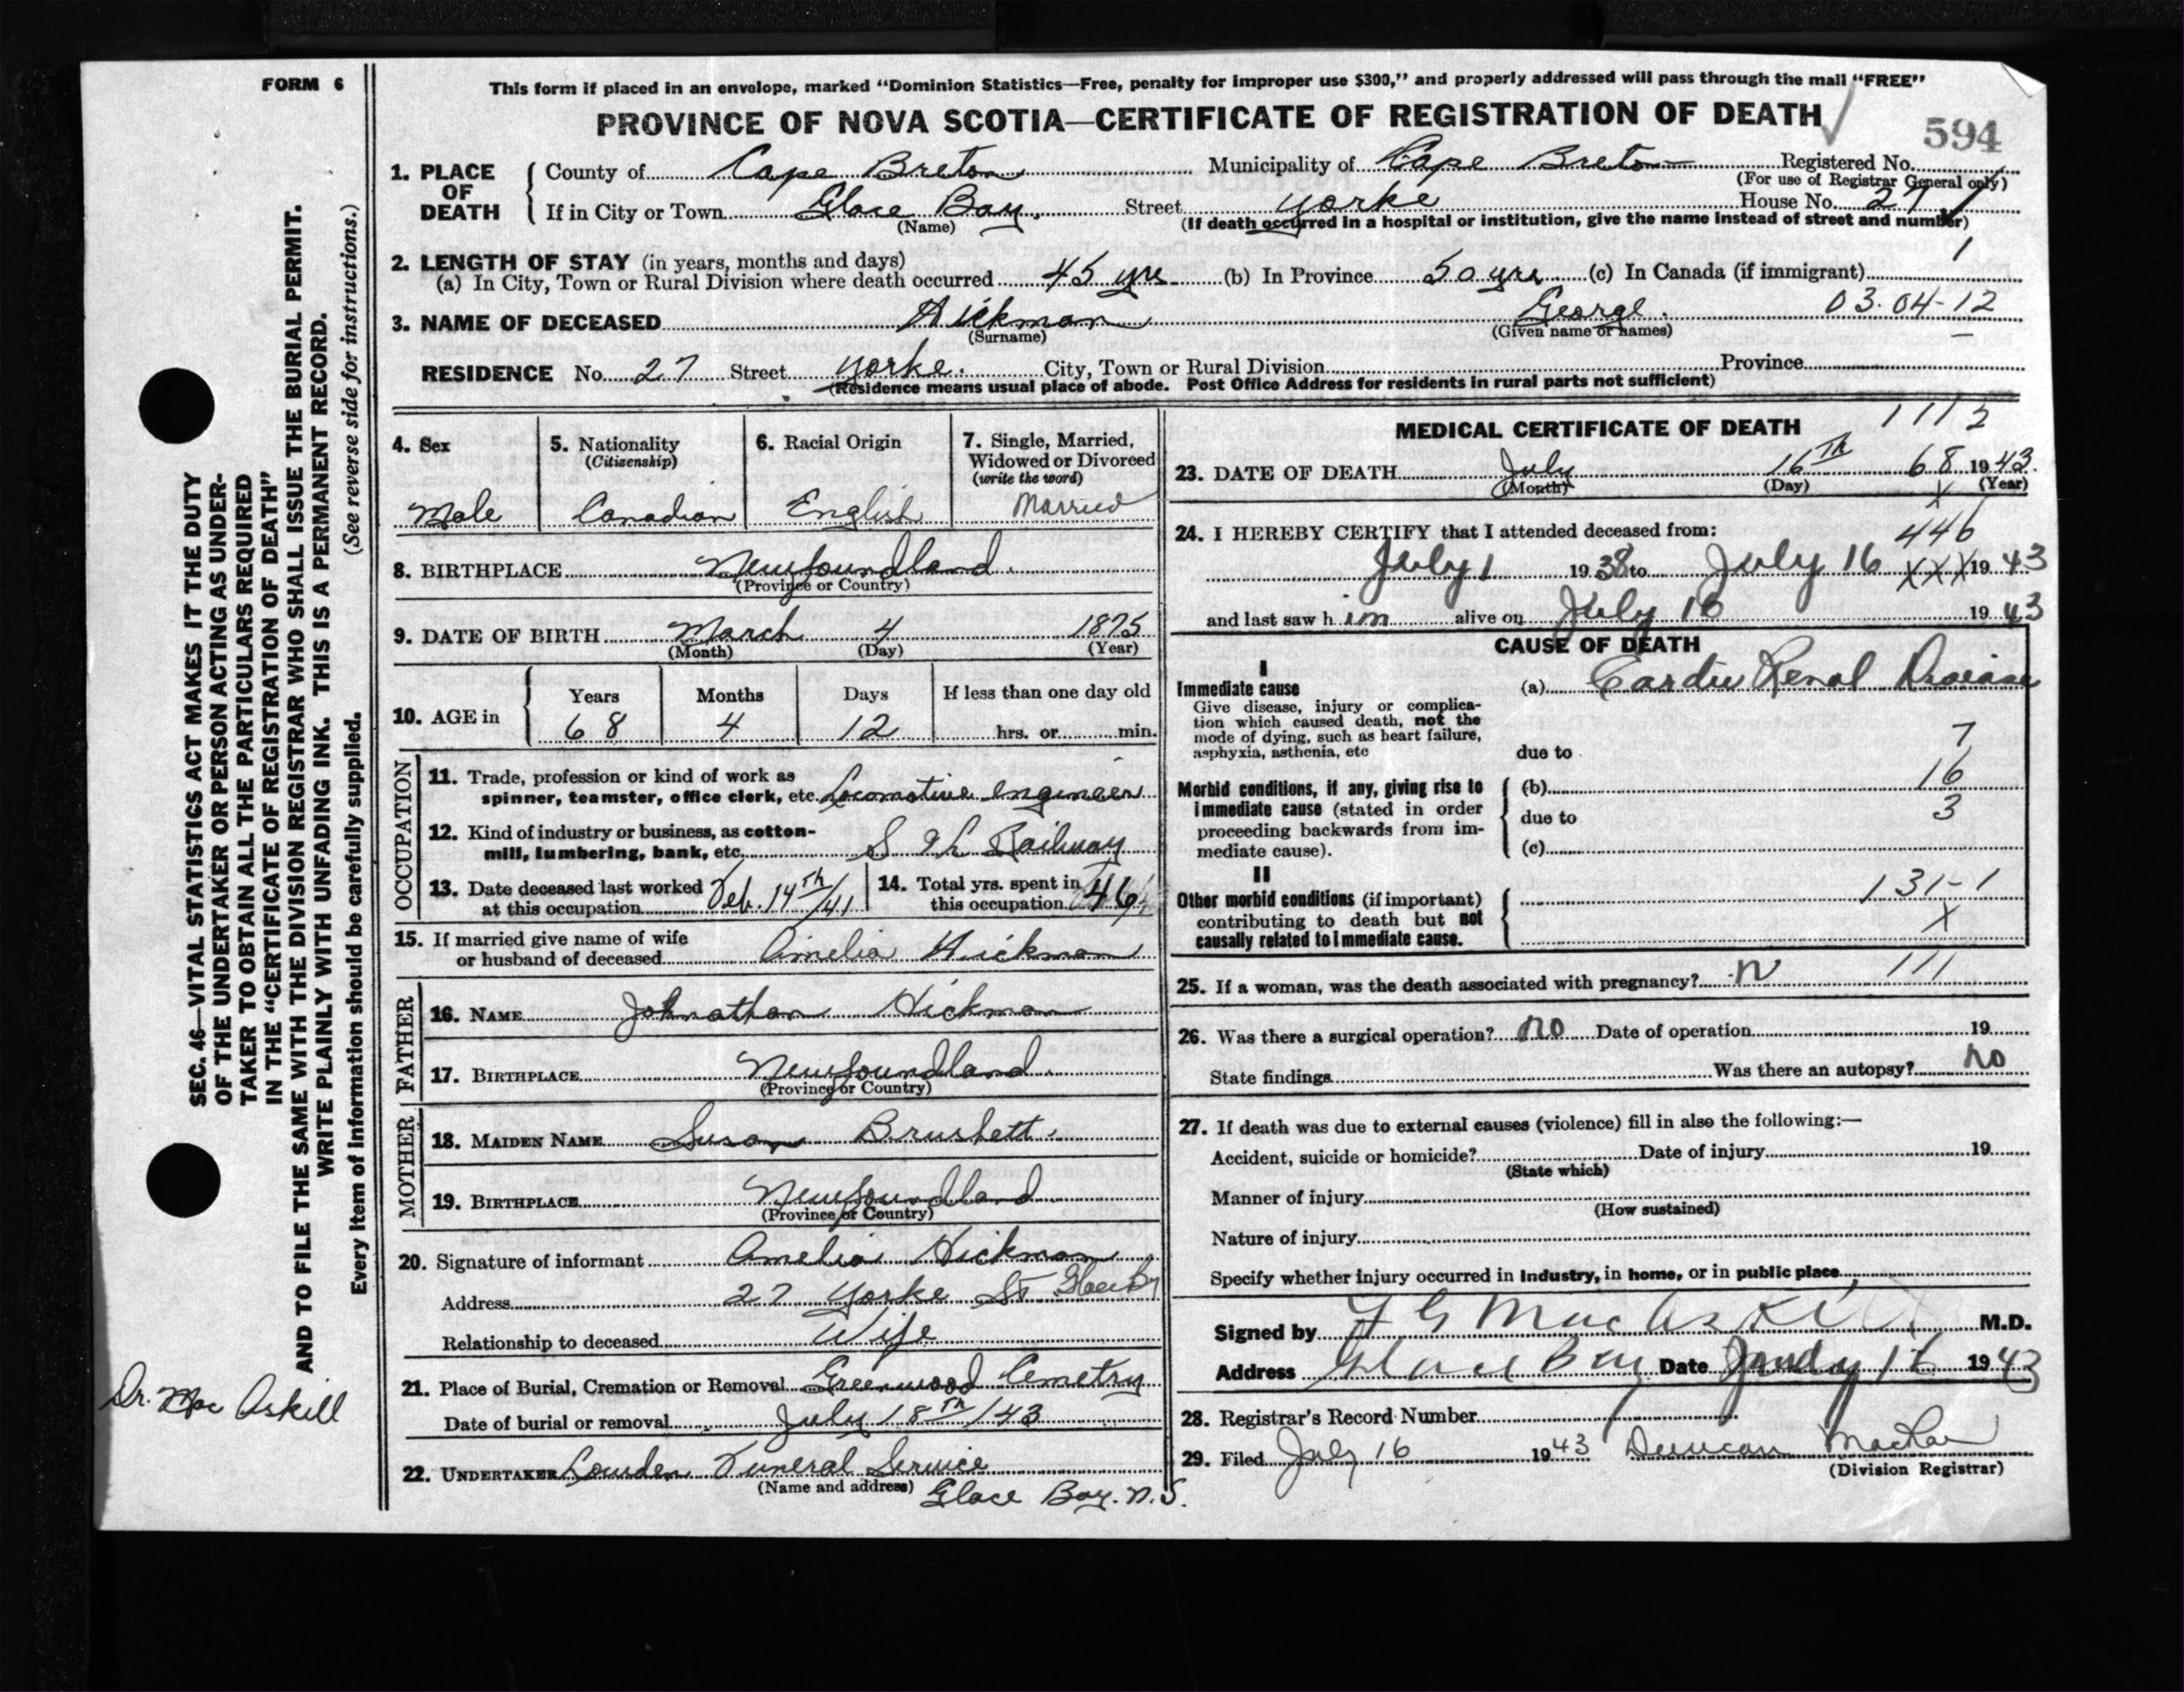 FORM 6
This form if placed in an envelope, marked "Dominion Statistics—Free, penalty for improper use $300," and properly addressed will pass through the mail "FREE"
PROVINCE OF NOVA SCOTIA—CERTIFICATE OF REGISTRATION OF DEATH
594
1. PLACE OF DEATH County of Cape Breton Municipality of Cape Breton Registered No.
(For use of Registrar General only)
If in City or Town Glace Bay. Street Yorke House No. 27
(Name) (If death occurred in a hospital or institution, give the name instead of street and number)
2. LENGTH OF STAY (in years, months and days) 1
(a) In City, Town or Rural Division where death occurred 45 yrs (b) In Province 50 yrs (c) In Canada (if immigrant)
3. NAME OF DECEASED Hickman George. 03.04-12
(Surname) (Given name or names)
RESIDENCE No. 27 Street Yorke. City, Town or Rural Division Province
(Residence means usual place of abode. Post Office Address for residents in rural parts not sufficient)
4. Sex
Male
5. Nationality
(Citizenship)
Canadian
6. Racial Origin
English
7. Single, Married,
Widowed or Divorced
(write the word)
Married
8. BIRTHPLACE Newfoundland.
(Province or Country)
9. DATE OF BIRTH March 4 1875
(Month) (Day) (Year)
10. AGE in Years Months Days If less than one day old
68 4 12 hrs. or min.
OCCUPATION
11. Trade, profession or kind of work as
spinner, teamster, office clerk, etc. Locomotive engineer
12. Kind of industry or business, as cotton-
mill, lumbering, bank, etc. S & L Railway
13. Date deceased last worked
at this occupation Feb. 14th/41
14. Total yrs. spent in
this occupation 46
15. If married give name of wife
or husband of deceased Amelia Hickman
FATHER
16. NAME Johnathan Hickman
17. BIRTHPLACE Newfoundland.
(Province or Country)
MOTHER
18. MAIDEN NAME Susan Brushett.
19. BIRTHPLACE Newfoundland
(Province or Country)
20. Signature of informant Amelia Hickman
Address 27 Yorke St
Relationship to deceased Wife
21. Place of Burial, Cremation or Removal Greenwood Cemetry
Date of burial or removal July 18th/43
22. UNDERTAKER Funeral Service
(Name and address) Glace Bay. N.S.
MEDICAL CERTIFICATE OF DEATH 1112
23. DATE OF DEATH July 16th 68 1943.
(Month) (Day) X (Year)
24. I HEREBY CERTIFY that I attended deceased from: 446
July 1 1938 to July 16 XXX 1943
and last saw him alive on July 16 1943
CAUSE OF DEATH
I
Immediate cause
Give disease, injury or complica-
tion which caused death, not the
mode of dying, such as heart failure,
asphyxia, asthenia, etc
(a) Cardio Renal Disease
due to 7
Morbid conditions, if any, giving rise to
immediate cause (stated in order
proceeding backwards from im-
mediate cause).
(b) 16
due to 3
(c)
II
Other morbid conditions (if important)
contributing to death but not
causally related to immediate cause.
131-1
X
25. If a woman, was the death associated with pregnancy? 111
26. Was there a surgical operation? no Date of operation 19
State findings Was there an autopsy? no
27. If death was due to external causes (violence) fill in also the following:—
Accident, suicide or homicide? Date of injury 19
(State which)
Manner of injury
(How sustained)
Nature of injury
Specify whether injury occurred in industry, in home, or in public place
Signed by F G MacAskill M.D.
Address Glace Bay Date July 16 1943
28. Registrar's Record Number
29. Filed July 16 1943 Duncan MacRae
(Division Registrar)
SEC. 46—VITAL STATISTICS ACT MAKES IT THE DUTY
OF THE UNDERTAKER OR PERSON ACTING AS UNDER-
TAKER TO OBTAIN ALL THE PARTICULARS REQUIRED
IN THE "CERTIFICATE OF REGISTRATION OF DEATH"
AND TO FILE THE SAME WITH THE DIVISION REGISTRAR WHO SHALL ISSUE THE BURIAL PERMIT.
WRITE PLAINLY WITH UNFADING INK. THIS IS A PERMANENT RECORD.
Every item of information should be carefully supplied. (See reverse side for instructions.)
Dr. Mac Askill